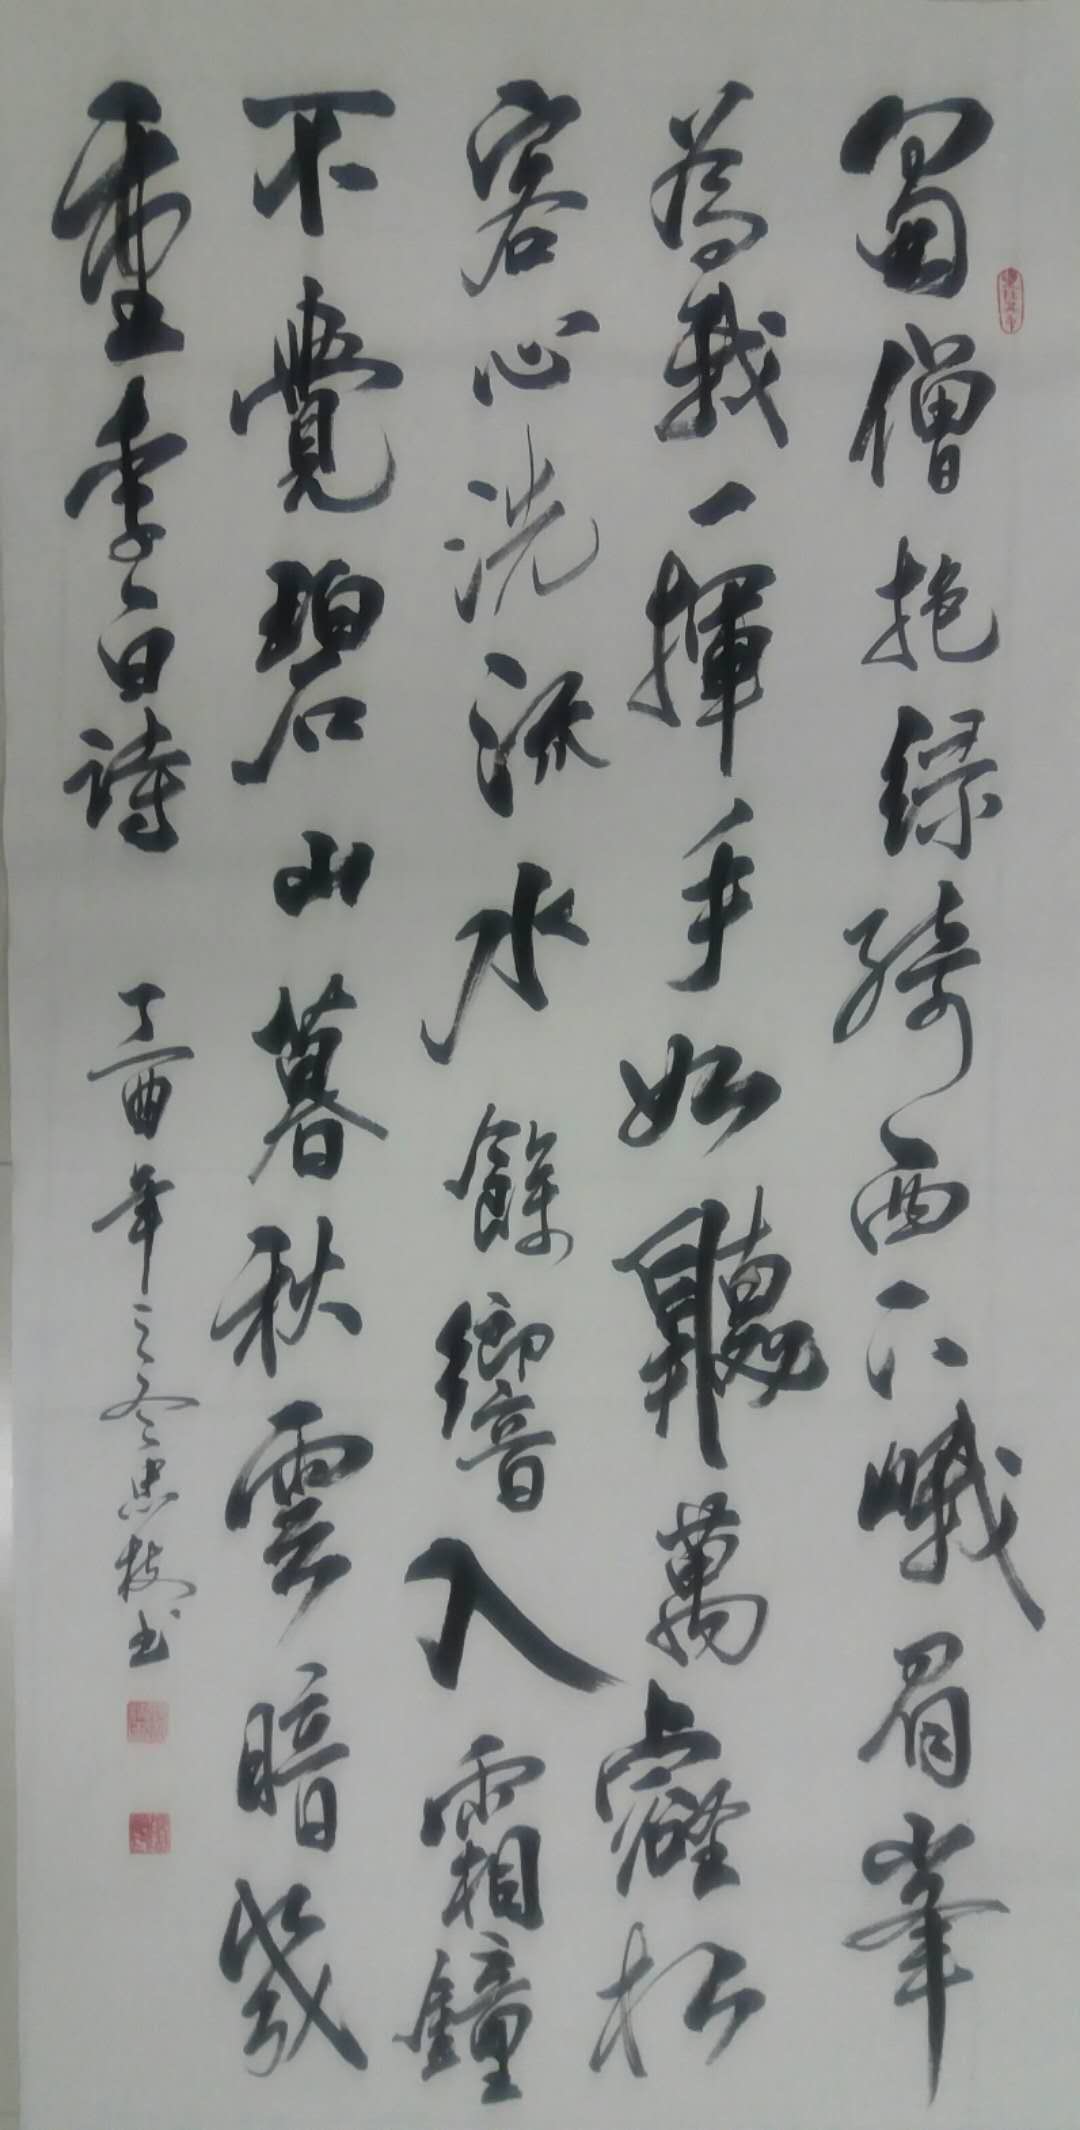 蜀僧抱綠綺西下峨眉峯
為我一揮手如聽萬壑松
客心洗流水餘響入霜鐘
不覺碧山暮秋雲暗幾
重李白詩
丁酉年之冬忠枝书